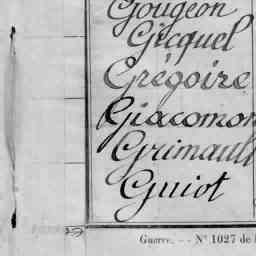 Gougeon
Gicquel
Grégoire
Giacomon
Grimault
Guiot
Guerre. -- N° 1027 de